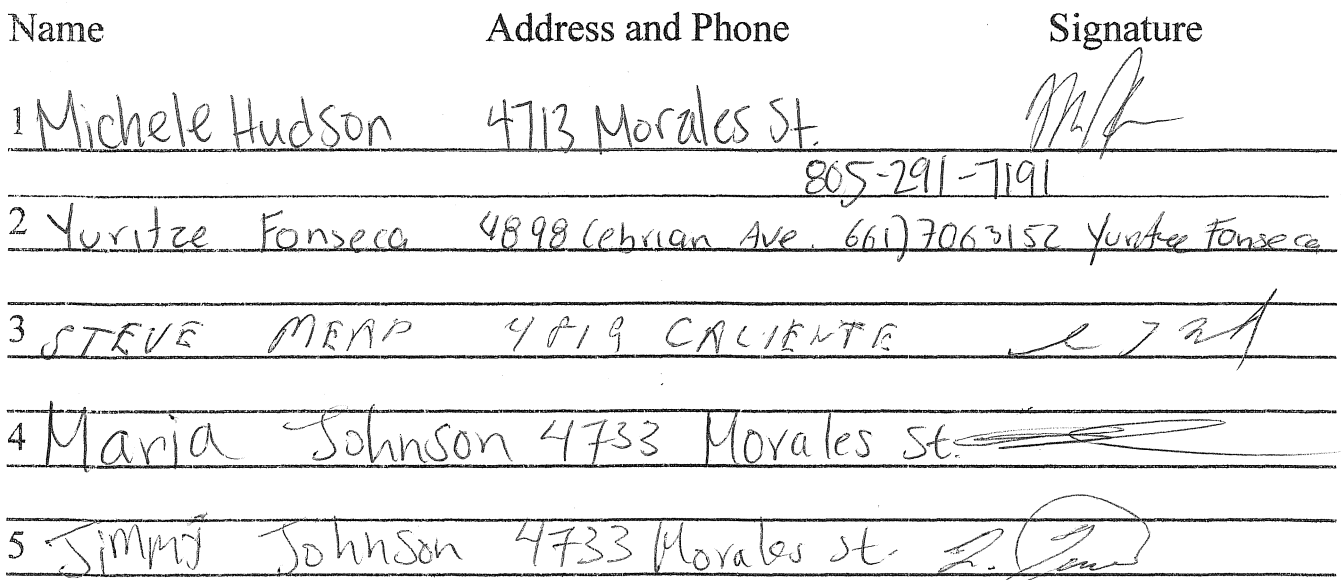 Name Address and Phone Signature
1 Michele Hudson 4713 Morales St.
805-291-7191
2 Yuritze Fonseca 4898 Cebrian Ave. 661)7063152 Yuritze Fonseca
3 STEVE 4819 CALIENTE
4 Maria Johnson 4733 Morales St.
5 Jimmy Johnson 4733 Morales St.